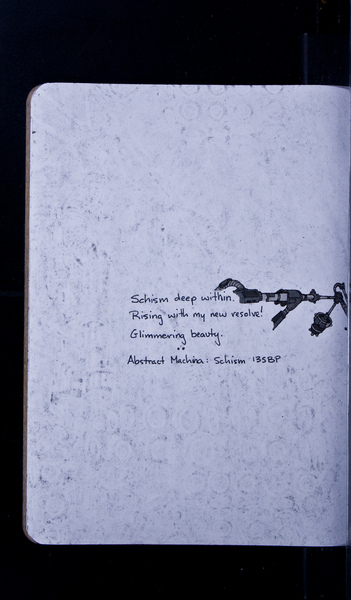 Schism deep within.
Rising with my new resolve!
Glimmering beauty.
Abstract Machina: Schism 135BP